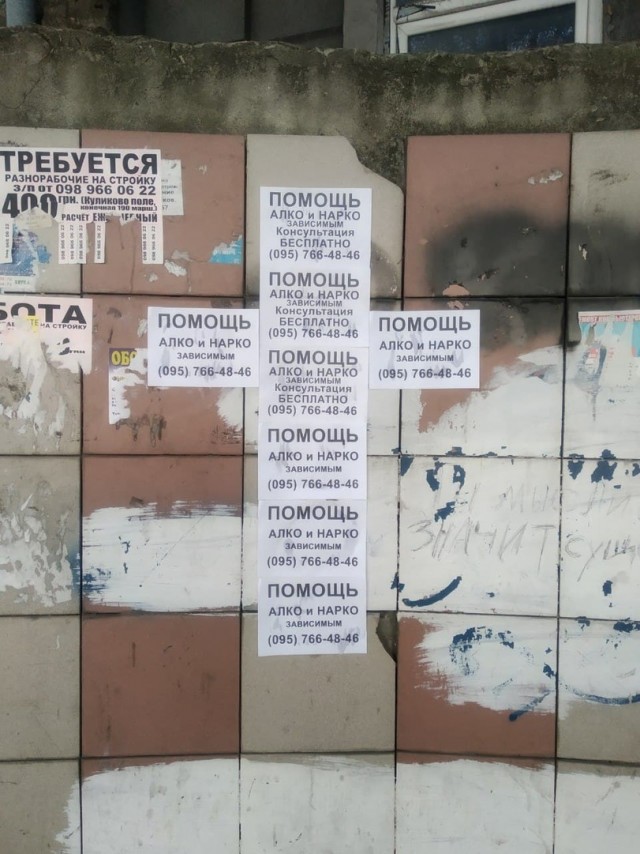 ТРЕБУЕТСЯ
РАЗНОРАБОЧИЕ НА СТРОЙКУ
З/П ОТ 098 966 06 22
400 грн. (Куликово поле,
конечная 190 марш.)
РАСЧЁТ
БОТА
НА СТРОЙКУ
ОБО
ПОМОЩЬ
АЛКО и НАРКО
ЗАВИСИМЫМ
Консультация
БЕСПЛАТНО
(095) 766-48-46
ПОМОЩЬ
АЛКО и НАРКО
ЗАВИСИМЫМ
Консультация
БЕСПЛАТНО
(095) 766-48-46
ПОМОЩЬ
АЛКО и НАРКО
ЗАВИСИМЫМ
(095) 766-48-46
ПОМОЩЬ
АЛКО и НАРКО
ЗАВИСИМЫМ
Консультация
БЕСПЛАТНО
(095) 766-48-46
ПОМОЩЬ
АЛКО и НАРКО
ЗАВИСИМЫМ
(095) 766-48-46
ПОМОЩЬ
АЛКО и НАРКО
ЗАВИСИМЫМ
(095) 766-48-46
ПОМОЩЬ
АЛКО и НАРКО
ЗАВИСИМЫМ
(095) 766-48-46
ПОМОЩЬ
АЛКО и НАРКО
ЗАВИСИМЫМ
(095) 766-48-46
ЗНАЧИТ